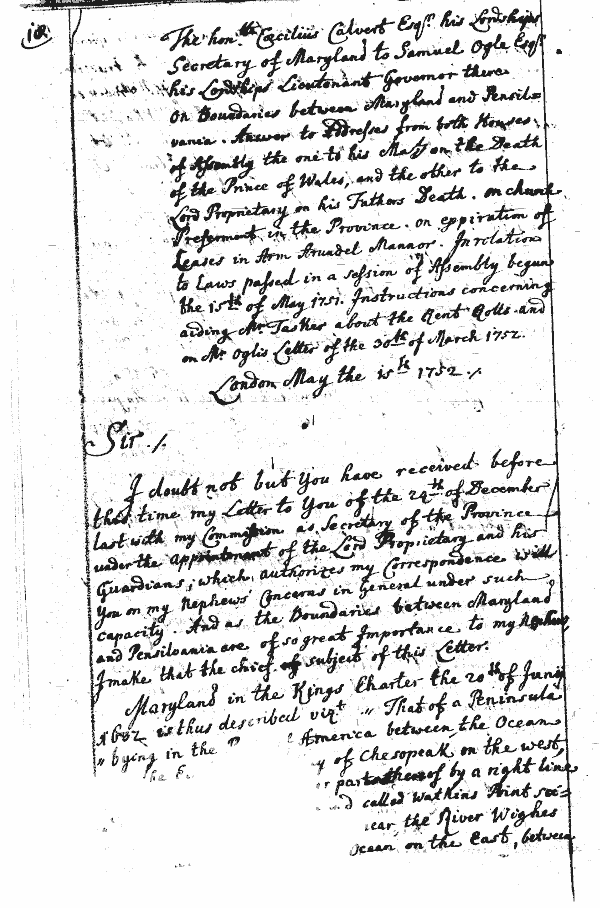 18
The hon.ble Cæcilius Calvert Esq.r his Lordships
Secretary of Maryland to Samuel Ogle Esq.r
his Lordships Lieutenant Governor there
on Boundaries between Maryland and Pensil=
vania. Answer to Addresses from both Houses
of Assembly the one to his Maty on the Death
of the Prince of Wales, and the other to the
Lord Proprietary on his Fathers Death. on church
Preferment in the Province. on expiration of
Leases in Arm Arundel Mannor. In relation
to Laws passed in a session of Assembly begun
the 15th of May 1751. Instructions concerning
aiding Mr Tasker about the Rent Rolls and
on Mr Ogle's Letter of the 30th of March 1752.
London May the 15th 1752./.
Sir./.
I doubt not but You have received before
this time my Letter to You of the 24th of December
last with my Commission as Secretary of the Province
under the appointment of the Lord Proprietary and his
Guardians; which authorizes my Correspondence with
You on my Nephews Concerns in General under such
capacity. And as the Boundaries between Maryland
and Pensilvania are of so great Importance to my Nephew
I make that the chief of subject of this Letter.
Maryland in the Kings Charter the 20th of June
1632 is thus described vizt „ That of a Peninsula
„ lying in the America between the Ocean
of Chesopeak on the west,
part thereof by a right line
called Watkins Point
the River Wighco
Ocean on the East, between